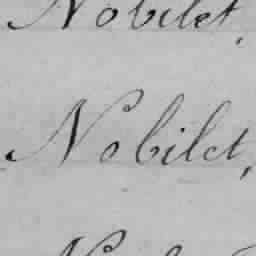 Nobilet,
Nobilet,